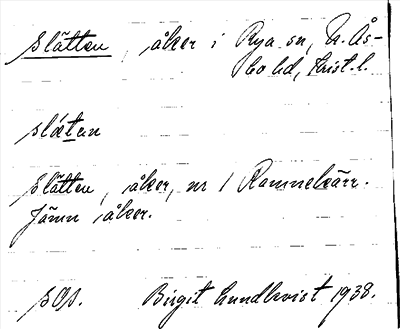 Slätten, åker i Rya sn, N. Ås-
bo hd, Krist. l.
slætən
Slätten, åker, nr 1 Ramnekärr.
Jämn åker.
SOA. Birgit Lundkvist 1938.